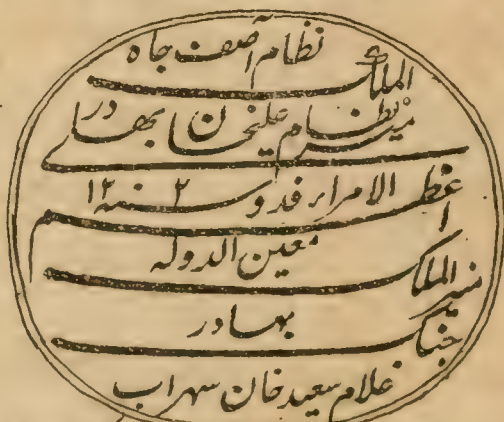 نظام آصف جاه
الملک
میر نظام علیخان بهادر
اعظم الامرا فدوی سنه ۱۲
معین الدوله
مشیر الملک
بهادر
جنگ
غلام سعید خان سهراب